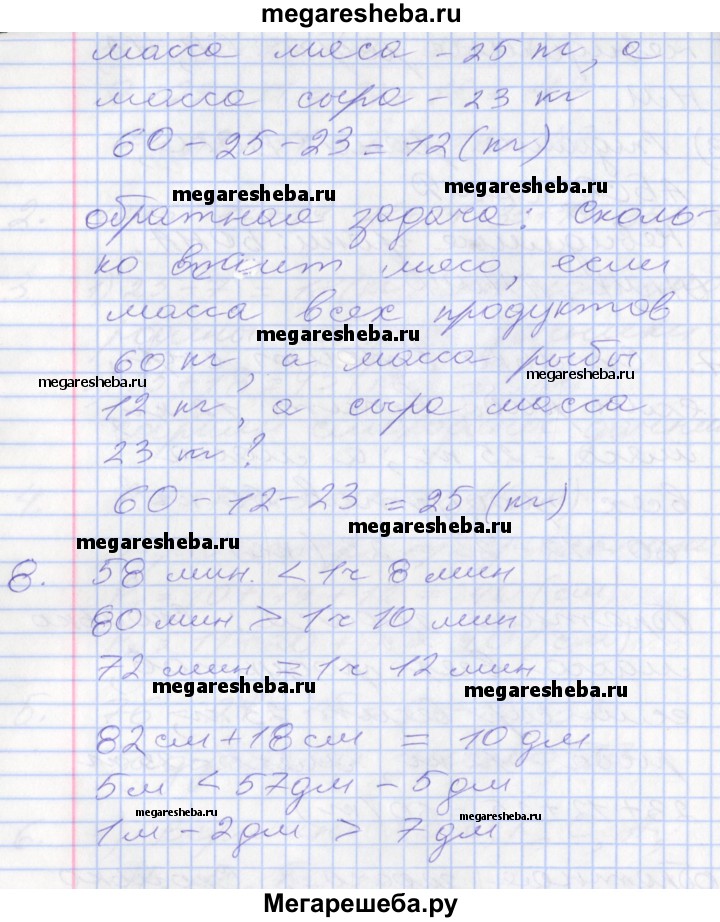 megaresheba.ru
масса мяса - 25 кг, а
масса сыра - 23 кг
60 - 25 - 23 = 12 (кг)
megaresheba.ru megaresheba.ru
обратная задача: сколь-
ко весит мясо, если
масса всех продуктов
megaresheba.ru
60 кг, а масса рыбы
megaresheba.ru megaresheba.ru
12 кг, а сыра масса
23 кг?
60 - 12 - 23 = 25 (кг)
megaresheba.ru megaresheba.ru
8. 58 мин. < 1 ч 8 мин
80 мин > 1 ч 10 мин
72 мин = 1 ч 12 мин
megaresheba.ru megaresheba.ru
82 см + 18 см = 10 дм
5 м < 57 дм - 5 дм
megaresheba.ru megaresheba.ru
1 м - 2 дм > 7 дм
Мегарешеба.ру